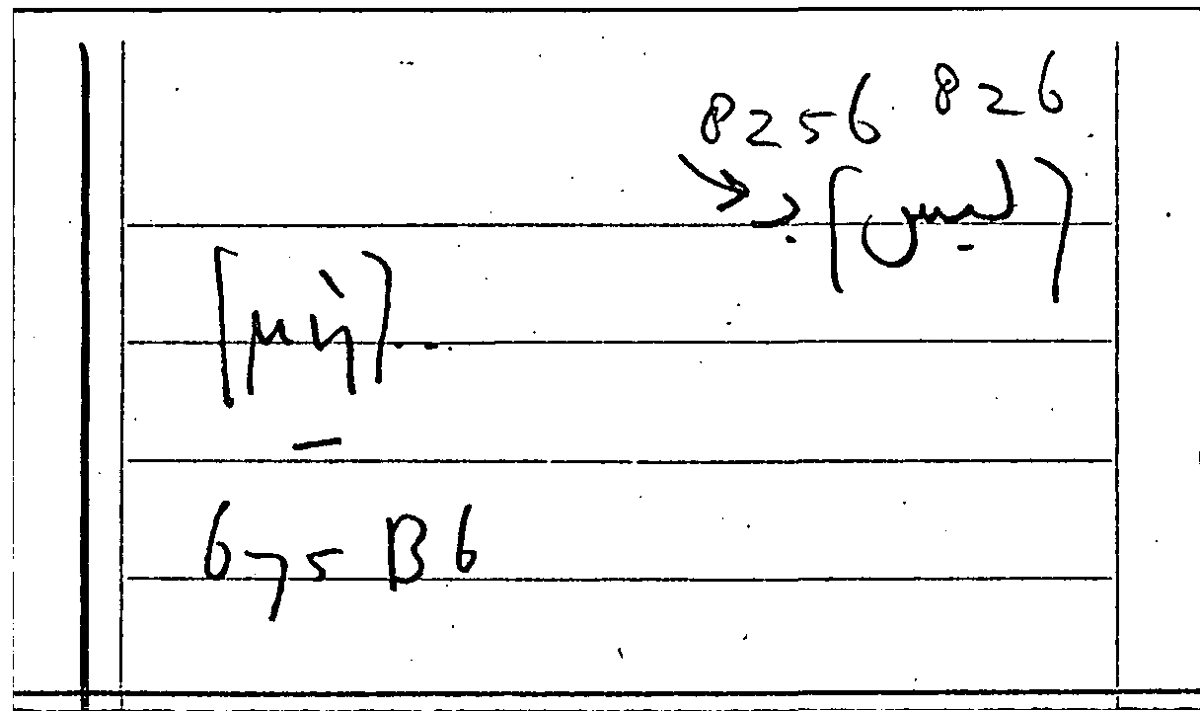 8256 826
[ليس]
[μὴ]...
675 B 6